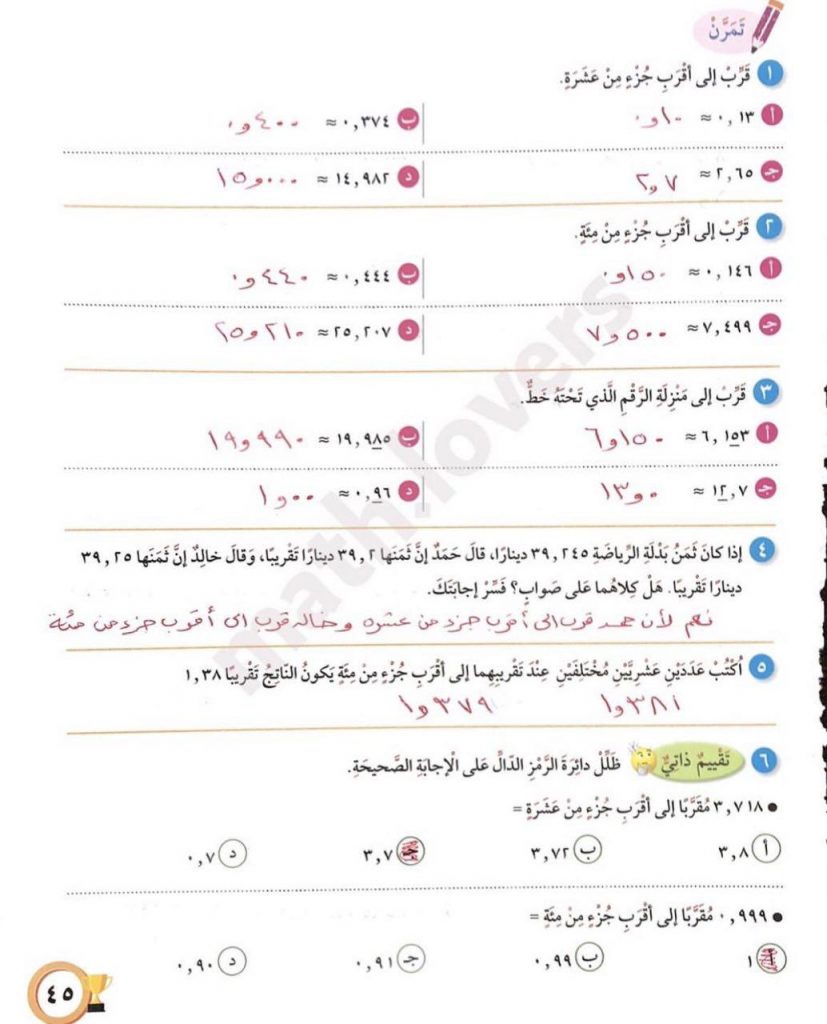 تَمَرَّنْ
١ قَرِّبْ إلى أَقْرَبِ جُزْءٍ مِنْ عَشَرَةٍ.
أ ٠,١٣ ≈ ٠و١٠ ب ٠,٣٧٤ ≈ ٠و٤٠٠
جـ ٢,٦٥ ≈ ٢و٧ د ١٤,٩٨٢ ≈ ١٥و٠٠٠
٢ قَرِّبْ إلى أَقْرَبِ جُزْءٍ مِنْ مِئَةٍ.
أ ٠,١٤٦ ≈ ٠و١٥٠ ب ٠,٤٤٤ ≈ ٠و٤٤٠
جـ ٧,٤٩٩ ≈ ٧و٥٠٠ د ٢٥,٢٠٧ ≈ ٢٥و٢١٠
٣ قَرِّبْ إلى مَنْزِلَةِ الرَّقْمِ الَّذي تَحْتَهُ خَطٌّ.
أ ٦,١٥٣ ≈ ٦و١٥٠ ب ١٩,٩٨٥ ≈ ١٩و٩٩٠
جـ ١٢,٧ ≈ ١٣و٠ د ٠,٩٦ ≈ ١و٠٠
٤ إذا كانَ ثَمَنُ بَدْلَةِ الرِّياضَةِ ٣٩,٢٤٥ دينارًا، قالَ حَمَدٌ إنَّ ثَمَنَها ٣٩,٢ دينارًا تَقْريبًا، وَقالَ خالِدٌ إنَّ ثَمَنَها ٣٩,٢٥
دينارًا تَقْريبًا. هَلْ كِلاهُما عَلى صَوابٍ؟ فَسِّرْ إجابَتَكَ.
نعم لأن حمد قرب الى أقرب جزء من عشره وخالد قرب الى أقرب جزء من مئة
٥ اُكْتُبْ عَدَدَيْنِ عَشْرِيَّيْنِ مُخْتَلِفَيْنِ عِنْدَ تَقْريبِهِما إلى أَقْرَبِ جُزْءٍ مِنْ مِئَةٍ يَكونُ النّاتِجُ تَقْريبًا ١,٣٨
١و٣٨١ ١و٣٧٩
٦ تَقْييمٌ ذاتِيٌّ ظَلِّلْ دائِرَةَ الرَّمْزِ الدّالِّ عَلى الْإجابَةِ الصَّحيحَةِ.
• ٣,٧١٨ مُقَرَّبًا إلى أَقْرَبِ جُزْءٍ مِنْ عَشَرَةٍ =
أ ٣,٨ ب ٣,٧٢ جـ ٣,٧ د ٠,٧
• ٠,٩٩٩ مُقَرَّبًا إلى أَقْرَبِ جُزْءٍ مِنْ مِئَةٍ =
أ ١ ب ٠,٩٩ جـ ٠,٩١ د ٠,٩٠
٤٥
math.lovers